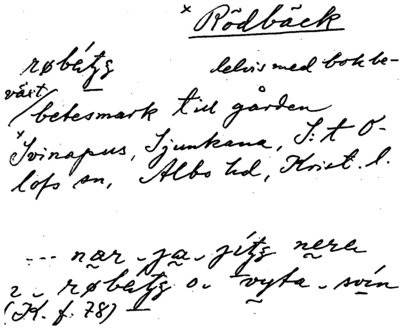 × Rödbäck
røbátʒ delvis med bok be-
växt/betesmark till gården
× Svinapus, Ljunkana, S:t O-
lofs sn, Albo hd, Krist. l.
--- nar ja jítʒ nera
ı røbátʒ o vyta svín
(K. f. 78)